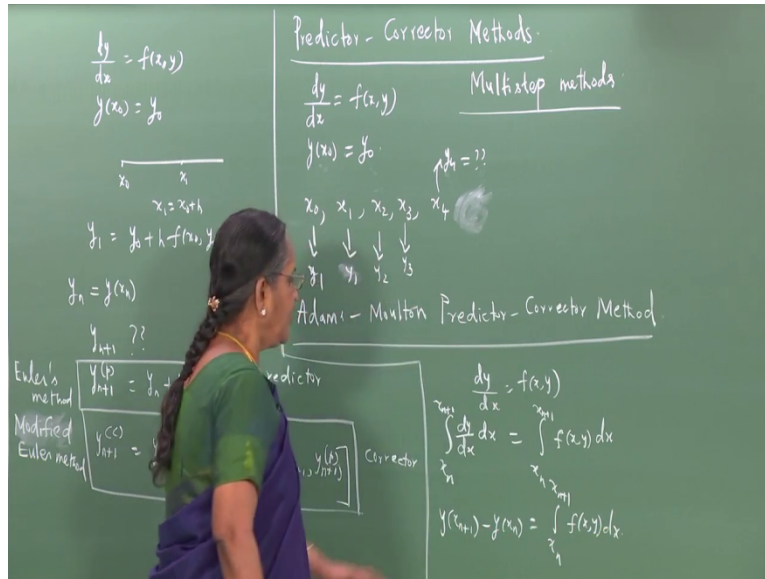 dy/dx = f(x, y)
y(x₀) = y₀
x₀ x₁
x₁ = x₀ + h
y₁ = y₀ + h f(x₀, y
yₙ = y(xₙ)
yₙ₊₁ ??
Euler's method
yₙ₊₁⁽ᵖ⁾ = yₙ +
redictor
Modified Euler method
yₙ₊₁⁽ᶜ⁾ =
, yₙ₊₁⁽ᵖ⁾)]
Corrector
Predictor - Corrector Methods.
Multistep methods.
dy/dx = f(x, y)
y(x₀) = y₀.
y₄ = ??
x₀, x₁, x₂, x₃, x₄
↓ ↓ ↓ ↓
y₁ y₁ y₂ y₃
Adams - Moulton Predictor - Corrector Method.
dy/dx = f(x, y)
∫_{xₙ}^{xₙ₊₁} dy/dx dx = ∫_{xₙ}^{xₙ₊₁} f(x, y) dx
y(xₙ₊₁) - y(xₙ) = ∫_{xₙ}^{xₙ₊₁} f(x, y) dx.